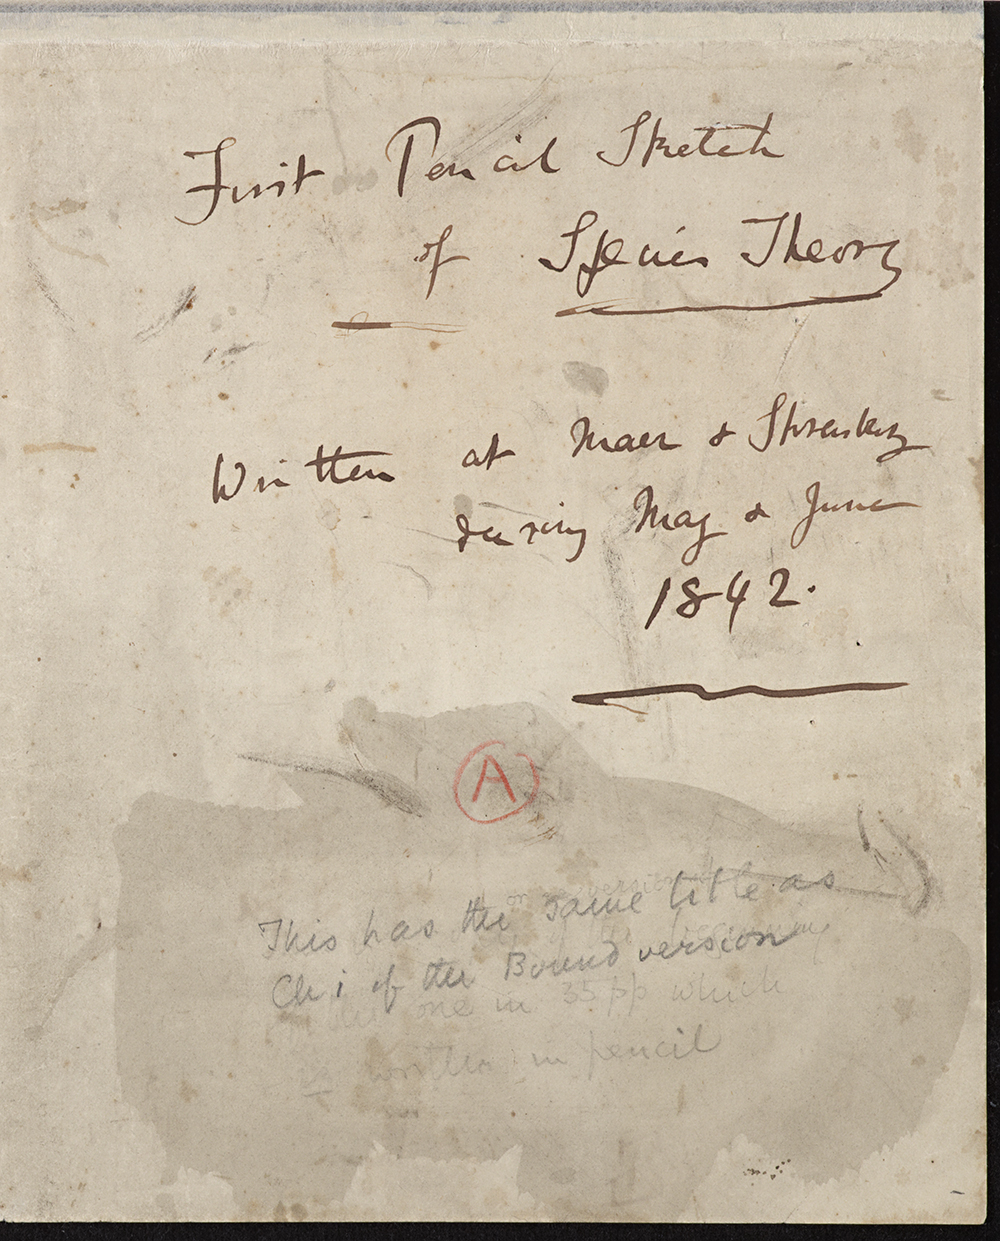 First Pencil Sketch
of Species Theory
Written at Maer & Shrewsbury
during May & June
1842.
A
This has the same title as
Ch i of the Bound version
one in 35 pp which
is written in pencil